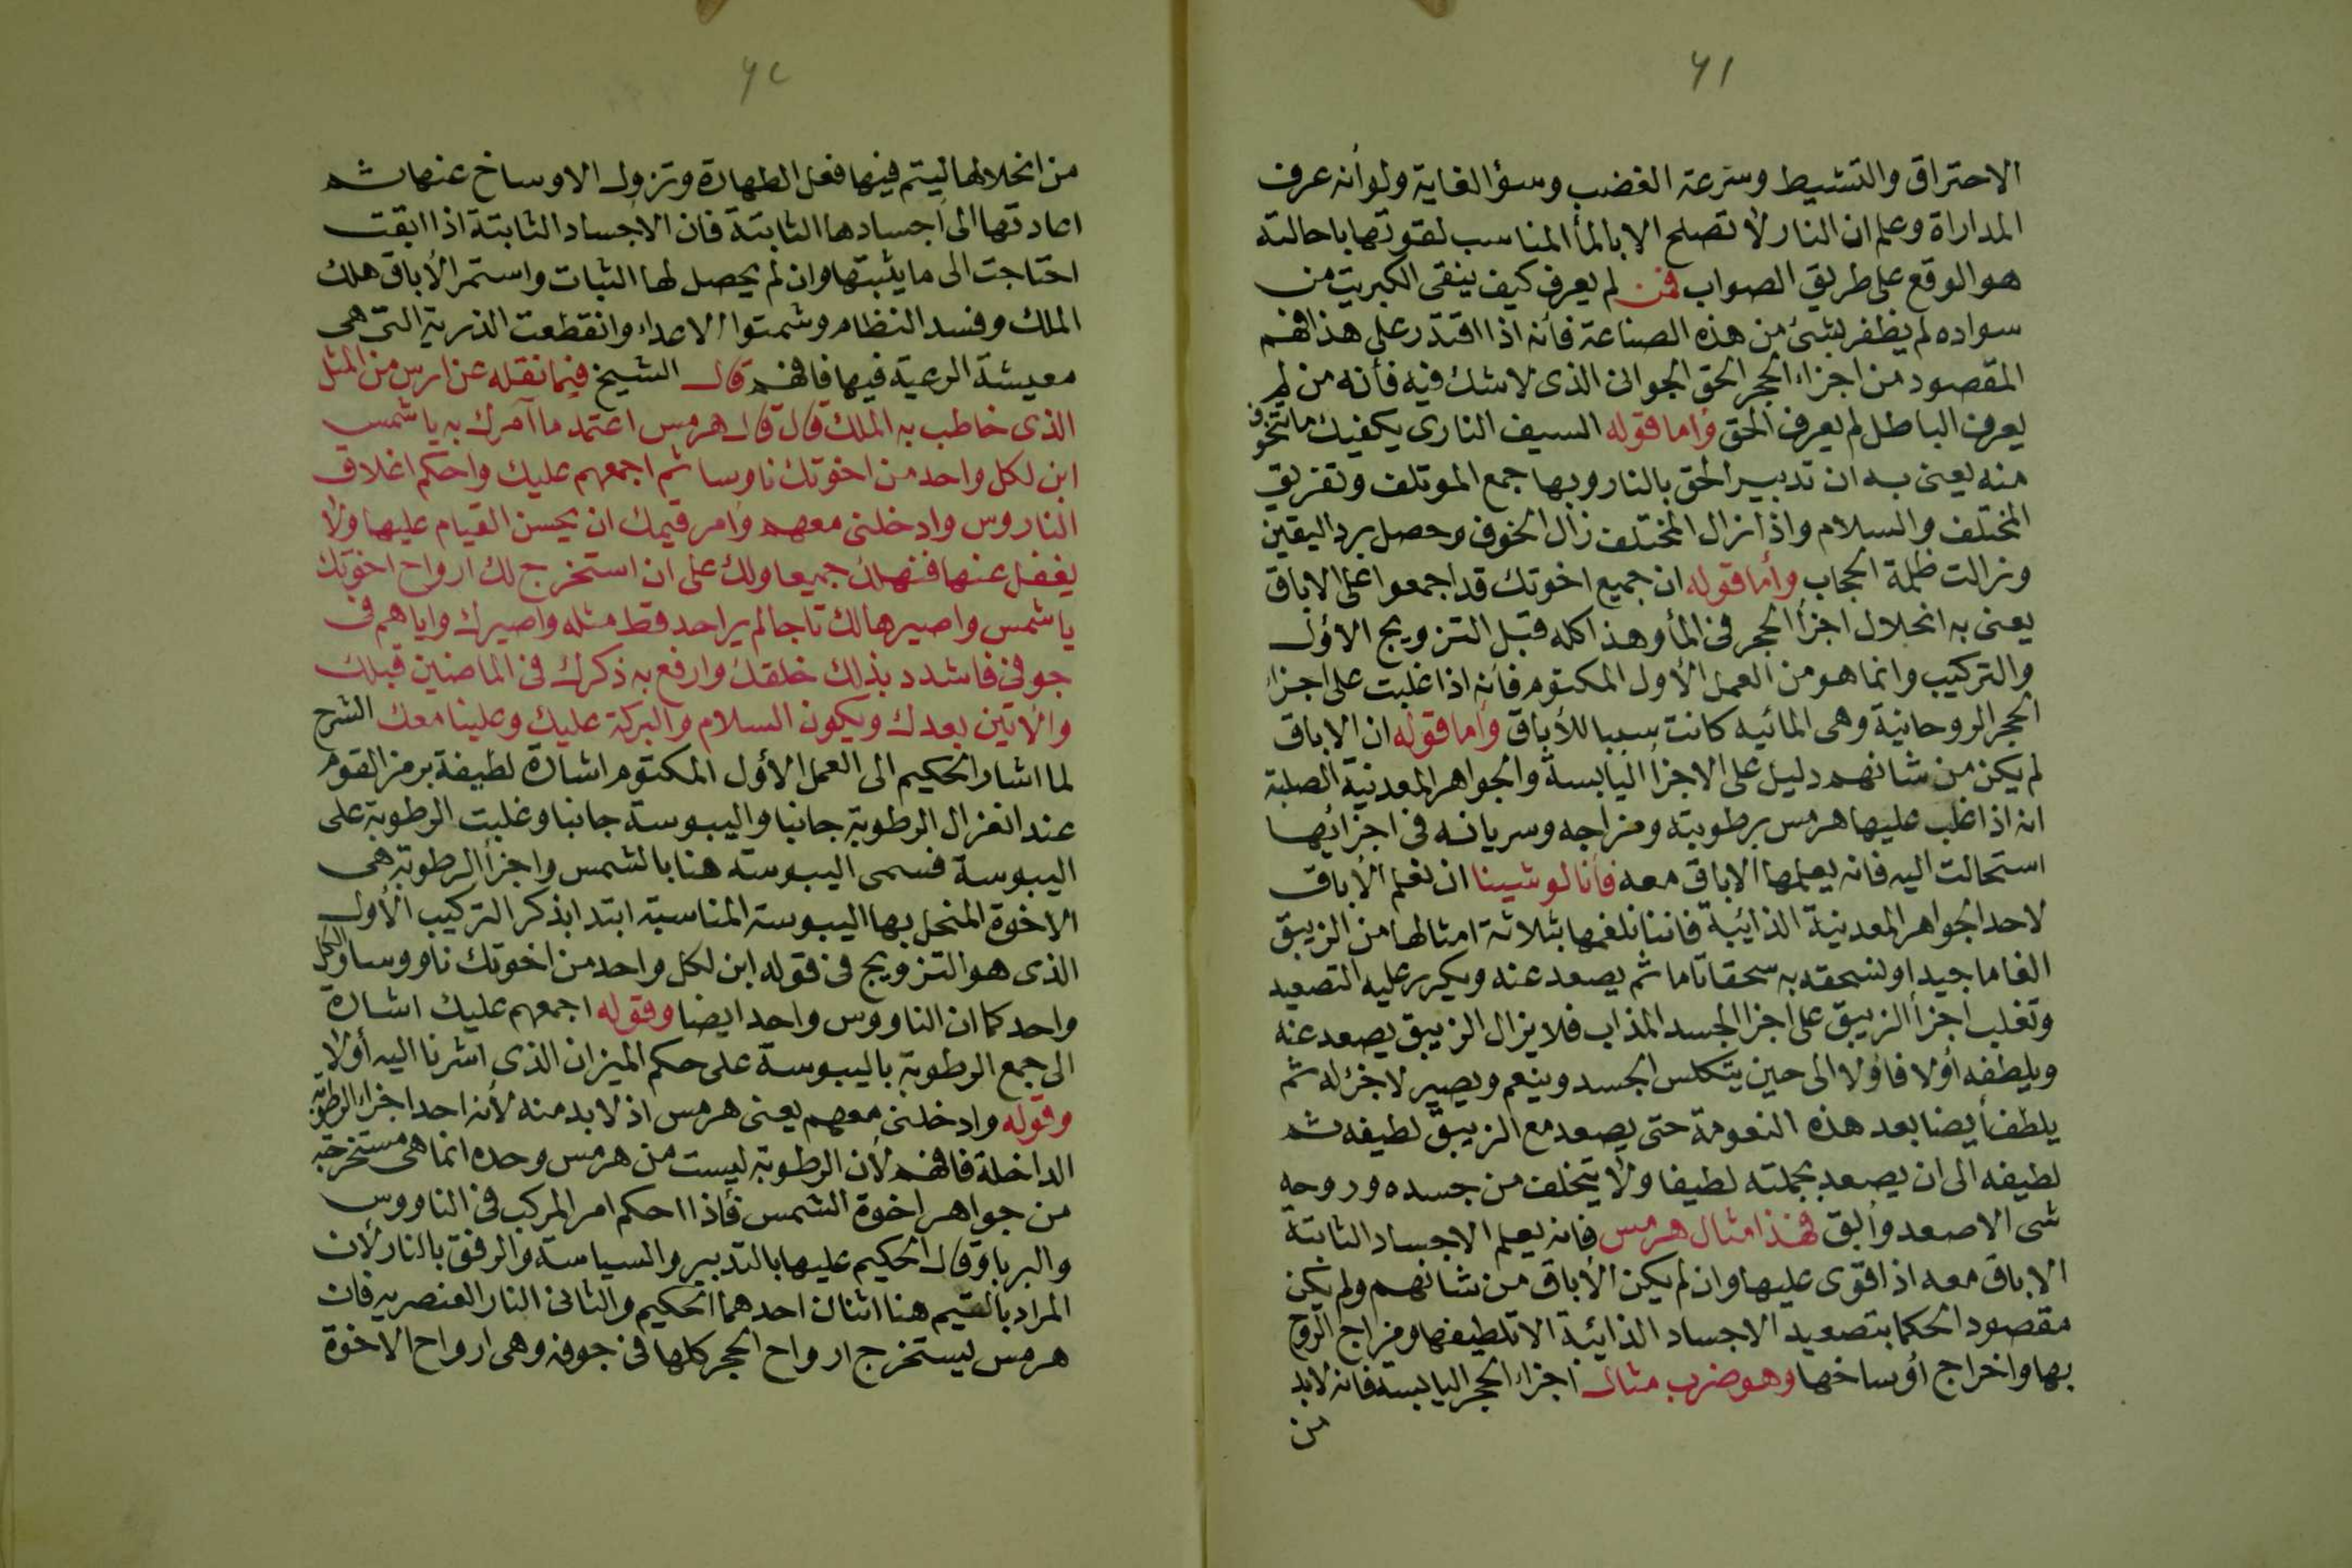 ٦١
الاحتراق والتشيط وسرعة الغضب وسؤ الغاية ولو أنه عرف
المداراة وعلم ان النار لا تصلح الا بالمأ المناسب لقوتها باحالته
هو الوقع على طريق الصواب فمن لم يعرف كيف ينقى الكبريت من
سواده لم يظفر بشئ من هذه الصناعة فأنه اذا اقتدر على هذا فهم
المقصود من اجزاء الحجر الحق الجوانى الذى لا شك فيه فأنه من لم
يعرف الباطل لم يعرف الحق وأما قوله السيف النارى يكفيك ما تتخوف
منه يعنى به ان تدبير الحق بالنار وبها جمع الموتلف وتفريق
المختلف والسلام واذا زال المختلف زال الخوف وحصل برد اليقين
وزالت ظلمة الحجاب وأما قوله ان جميع اخوتك قد اجمعوا على الاباق
يعنى به انحلال اجزأ الحجر فى المأ وهذا كله قبل التزويج الاؤل
والتركيب وانما هو من العمل الأول المكتوم فأنه اذا غلبت على اجزاء
الحجر الروحانية وهى المائيه كانت سببا للأباق وأما قوله ان الاباق
لم يكن من شانهم دليل على الاجزأ اليابسة والجواهر المعدنية الصلبة
انه اذا غلب عليها هرمس برطوبته ومزاجه وسريانه فى اجزائها
استحالت اليه فانه يعلمها الاباق معه فأنا لو شينا ان نعلم الأباق
لاحد الجواهر المعدنية الذائبة فاننا نلغمها بثلاثة امثالها من الزيبق
الغاما جيدا ونسحقه به سحقا تاما ثم يصعد عنه ويكرر عليه التصعيد
وتغلب اجزأ الزيبق على اجزا الجسد المذاب فلا يزال الزيبق يصعد عنه
ويلطفه أولا فاؤلا الى حين يتكلس الجسد وينعم ويصير لا جزء له ثم
يلطف أيضا بعد هذه النعومة حتى يصعد مع الزيبق لطيفه ثم
لطيفه الى ان يصعد بجملته لطيفا ولا يتخلف من جسده وروحه
شى الا صعد وأبق فهذا مثال هرمس فانه يعلم الاجساد الثابتة
الاباق معه اذا قوى عليها وان لم يكن الأباق من شانهم ولم يكن
مقصود الحكما بتصعيد الاجساد الذائبة الا تلطيفها ومزاج الروح
بها واخراج اوساخها وهو ضرب مثال اجزاء الحجر اليابسة فانه لابد
من
٦٢
من انحلالها ليتم فيها فعل الطهارة وتزول الاوساخ عنها ثم
اعادتها الى اجسادها الثابتة فان الاجساد الثابتة اذا ابقت
احتاجت الى ما يثبتها وان لم يحصل لها الثبات واستمر الأباق هلك
الملك وفسد النظام وشمتوا الاعداء وانقطعت الذرية التى هى
معيشة الرعية فيها فافهم قال الشيخ فيما نقله عن ارس من المثل
الذى خاطب به الملك قال قال هرمس اعتمد ما آمرك به يا شمس
ابن لكل واحد من اخوتك ناوسا ثم اجمعهم عليك واحكم اغلاق
الناروس وادخلنى معهم وأمر قيمك ان يحسن القيام عليها ولا
يغفل عنها فنهلك جميعا ولك على ان استخرج لك ارواح اخوتك
يا شمس واصيرها لك تاجا لم ير احد قط مثله واصيرك واياهم فى
جوفى فاشدد بذلك خلقك وارفع به ذكرك فى الماضين قبلك
والآتين بعدك ويكون السلام والبركة عليك وعلينا معك الشرح
لما اشار الحكيم الى العمل الأول المكتوم اشارة لطيفة برمز القوم
عند انعزال الرطوبة جانبا واليبوسة جانبا وغلبت الرطوبة على
اليبوسة فسمى اليبوسة هنا بالشمس واجزأ الرطوبة هى
الاخوة المنحل بها اليبوسة المناسبة ابتدا بذكر التركيب الأول
الذى هو التزويج فى قوله ابن لكل واحد من اخوتك ناووسا والكل
واحد كما ان الناووس واحد ايضا وقوله اجمعهم عليك اشارة
الى جمع الرطوبة باليبوسة على حكم الميزان الذى اشرنا اليه أولا
وقوله وادخلنى معهم يعنى هرمس اذ لا بد منه لأنه احد اجزاء الرطوبة
الداخلة فافهم لأن الرطوبة ليست من هرمس وحده انما هى مستخرجة
من جواهر اخوة الشمس فأذا احكم امر المركب فى الناووس
والبربا وقال الحكيم عليها بالتدبير والسياسة والرفق بالنار لأن
المراد بالقيم هنا اثنان احدهما الحكيم والثانى النار العنصريه فان
هرمس ليستخرج ارواح الحجر كلها فى جوفه وهى ارواح الاخوة